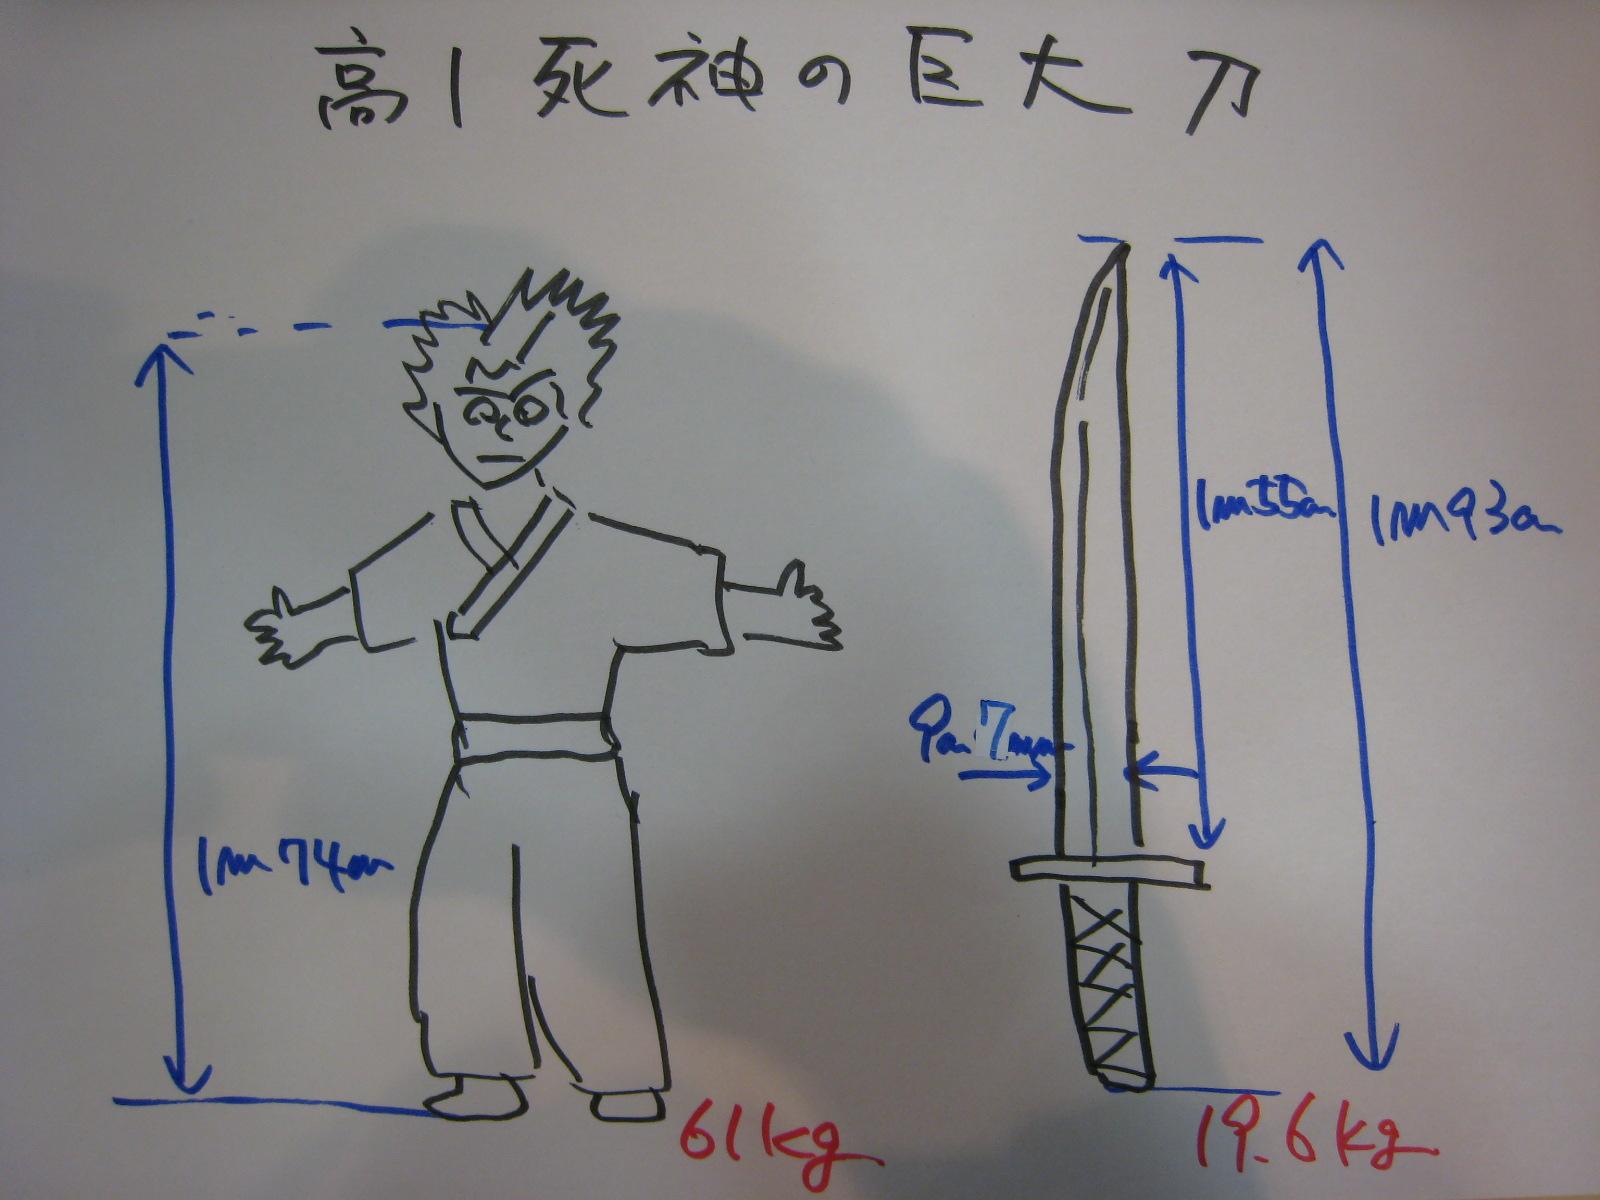 高1死神の巨大刀
1m55cm
1m93cm
9cm7mm
1m74cm
61kg
19.6kg